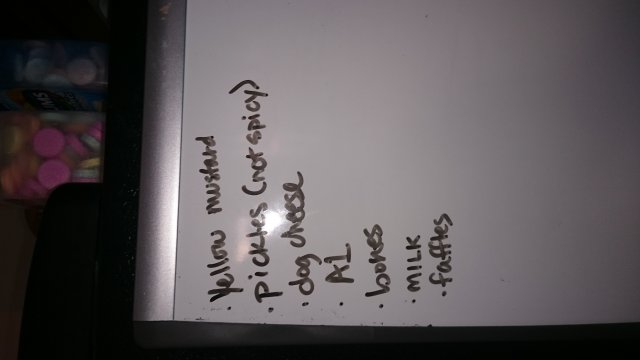 · Yellow mustard
· Pickles (not spicy)
· dog cheese
· A1
· bones
· MILK
· faffles